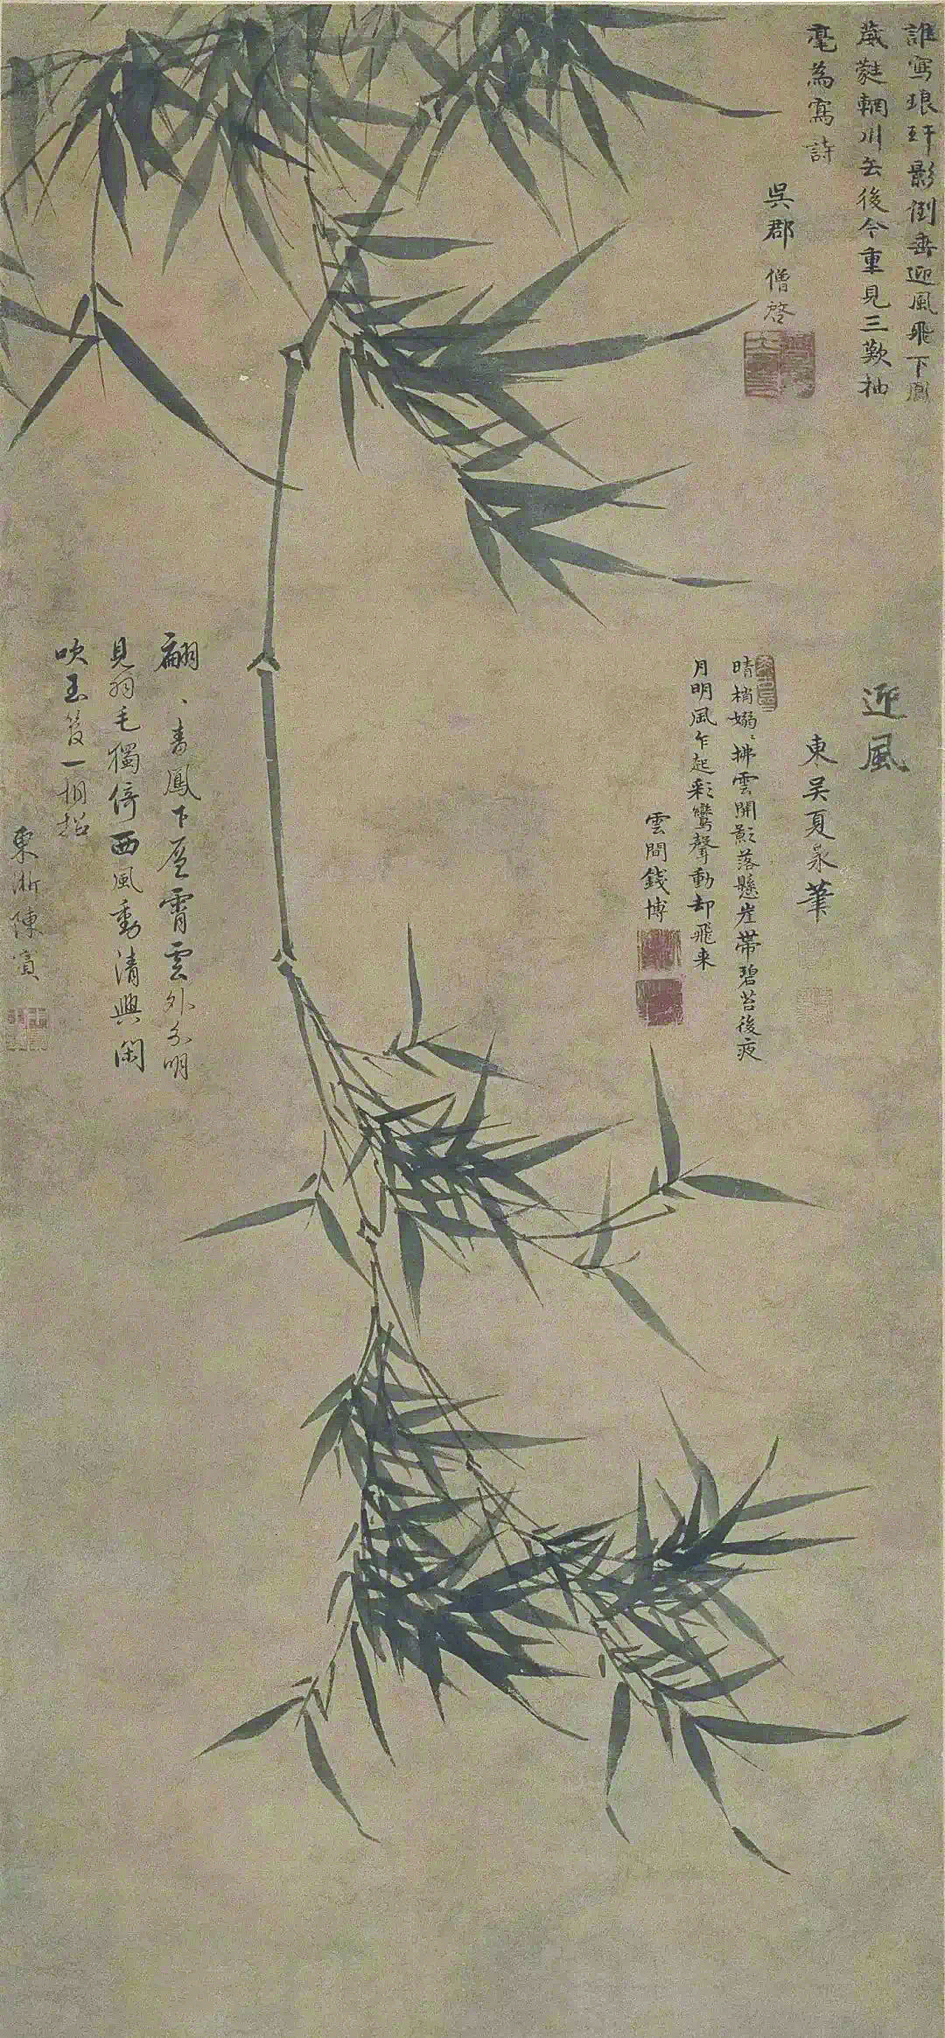 誰寫琅玕影倒垂迎風飛下鳳
葳蕤輞川去後今重見三歎抽
毫為寫詩
吳郡 僧啓
迎風
東吴夏㫤筆
晴梢嫋〻拂雲開影落懸崖帶碧苔後夜
月明風乍起彩鸞聲動却飛来
雲間錢博
翩〻青鳳下層霄雲外分明
見羽毛獨倚西風動清興閑
吹玉 一相招
東浙陳